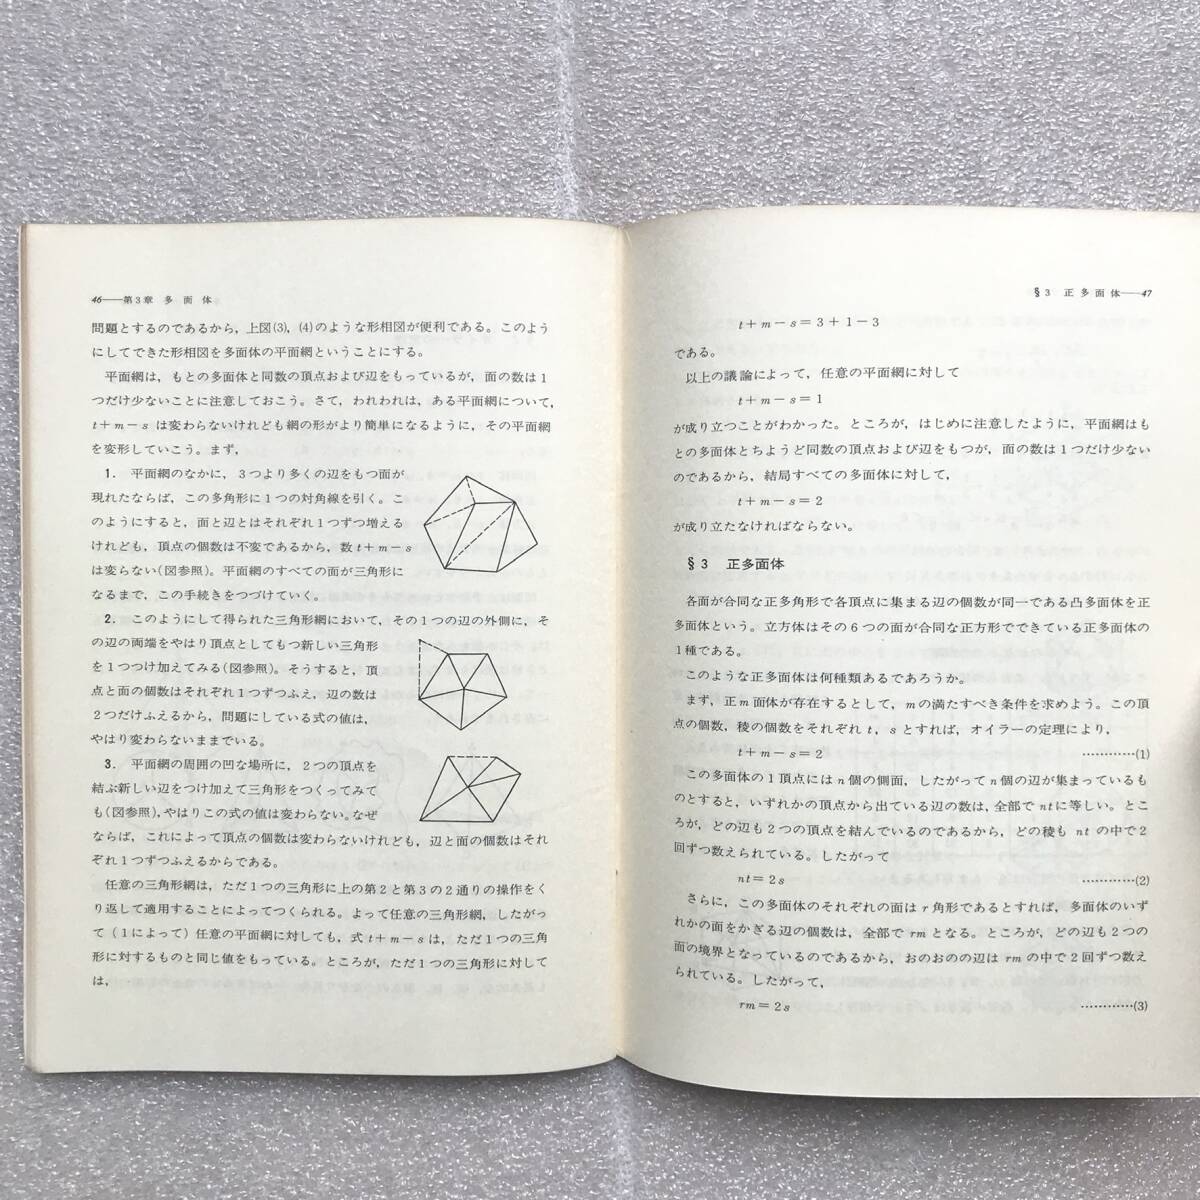 46——第3章 多面体
問題とするのであるから,上図(3),(4)のような形相図が便利である。このよう
にしてできた形相図を多面体の平面網ということにする。
平面網は,もとの多面体と同数の頂点および辺をもっているが,面の数は1
つだけ少ないことに注意しておこう。さて,われわれは,ある平面網について,
t+m−s は変わらないけれども網の形がより簡単になるように,その平面網
を変形していこう。まず,
1. 平面網のなかに,3つより多くの辺をもつ面が
現れたならば,この多角形に1つの対角線を引く。こ
のようにすると,面と辺とはそれぞれ1つずつ増える
けれども,頂点の個数は不変であるから,数t+m−s
は変らない(図参照)。平面網のすべての面が三角形に
なるまで,この手続きをつづけていく。
2. このようにして得られた三角形網において,その1つの辺の外側に,そ
の辺の両端をやはり頂点としてもつ新しい三角形
を1つつけ加えてみる(図参照)。そうすると,頂
点と面の個数はそれぞれ1つずつふえ,辺の数は
2つだけふえるから,問題にしている式の値は,
やはり変わらないままでいる。
3. 平面網の周囲の凹な場所に,2つの頂点を
結ぶ新しい辺をつけ加えて三角形をつくってみて
も(図参照),やはりこの式の値は変わらない。なぜ
ならば,これによって頂点の個数は変わらないけれども,辺と面の個数はそれ
ぞれ1つずつふえるからである。
任意の三角形網は,ただ1つの三角形に上の第2と第3の2通りの操作をく
り返して適用することによってつくられる。よって任意の三角形網,したがっ
て(1によって)任意の平面網に対しても,式 t+m−s は,ただ1つの三角
形に対するものと同じ値をもっている。ところが,ただ1つの三角形に対して
は,
§3 正多面体——47
t+m−s=3+1−3
である。
以上の議論によって,任意の平面網に対して
t+m−s=1
が成り立つことがわかった。ところが,はじめに注意したように,平面網はも
との多面体とちょうど同数の頂点および辺をもつが,面の数は1つだけ少ない
のであるから,結局すべての多面体に対して,
t+m−s=2
が成り立たなければならない。
§3 正多面体
各面が合同な正多角形で各頂点に集まる辺の個数が同一である凸多面体を正
多面体という。立方体はその6つの面が合同な正方形でできている正多面体の
1種である。
このような正多面体は何種類あるであろうか。
まず,正m面体が存在するとして,mの満たすべき条件を求めよう。この頂
点の個数,稜の個数をそれぞれ t,s とすれば,オイラーの定理により,
t+m−s=2 …………(1)
この多面体の1頂点にはn個の側面,したがってn個の辺が集まっているも
のとすると,いずれかの頂点から出ている辺の数は,全部で ntに等しい。とこ
ろが,どの辺も2つの頂点を結んでいるのであるから,どの稜も nt の中で2
回ずつ数えられている。したがって
nt=2s …………(2)
さらに,この多面体のそれぞれの面はr角形であるとすれば,多面体のいず
れかの面をかぎる辺の個数は,全部で rmとなる。ところが,どの辺も2つの
面の境界となっているのであるから,おのおのの辺は rmの中で2回ずつ数え
られている。したがって,
rm=2s …………(3)